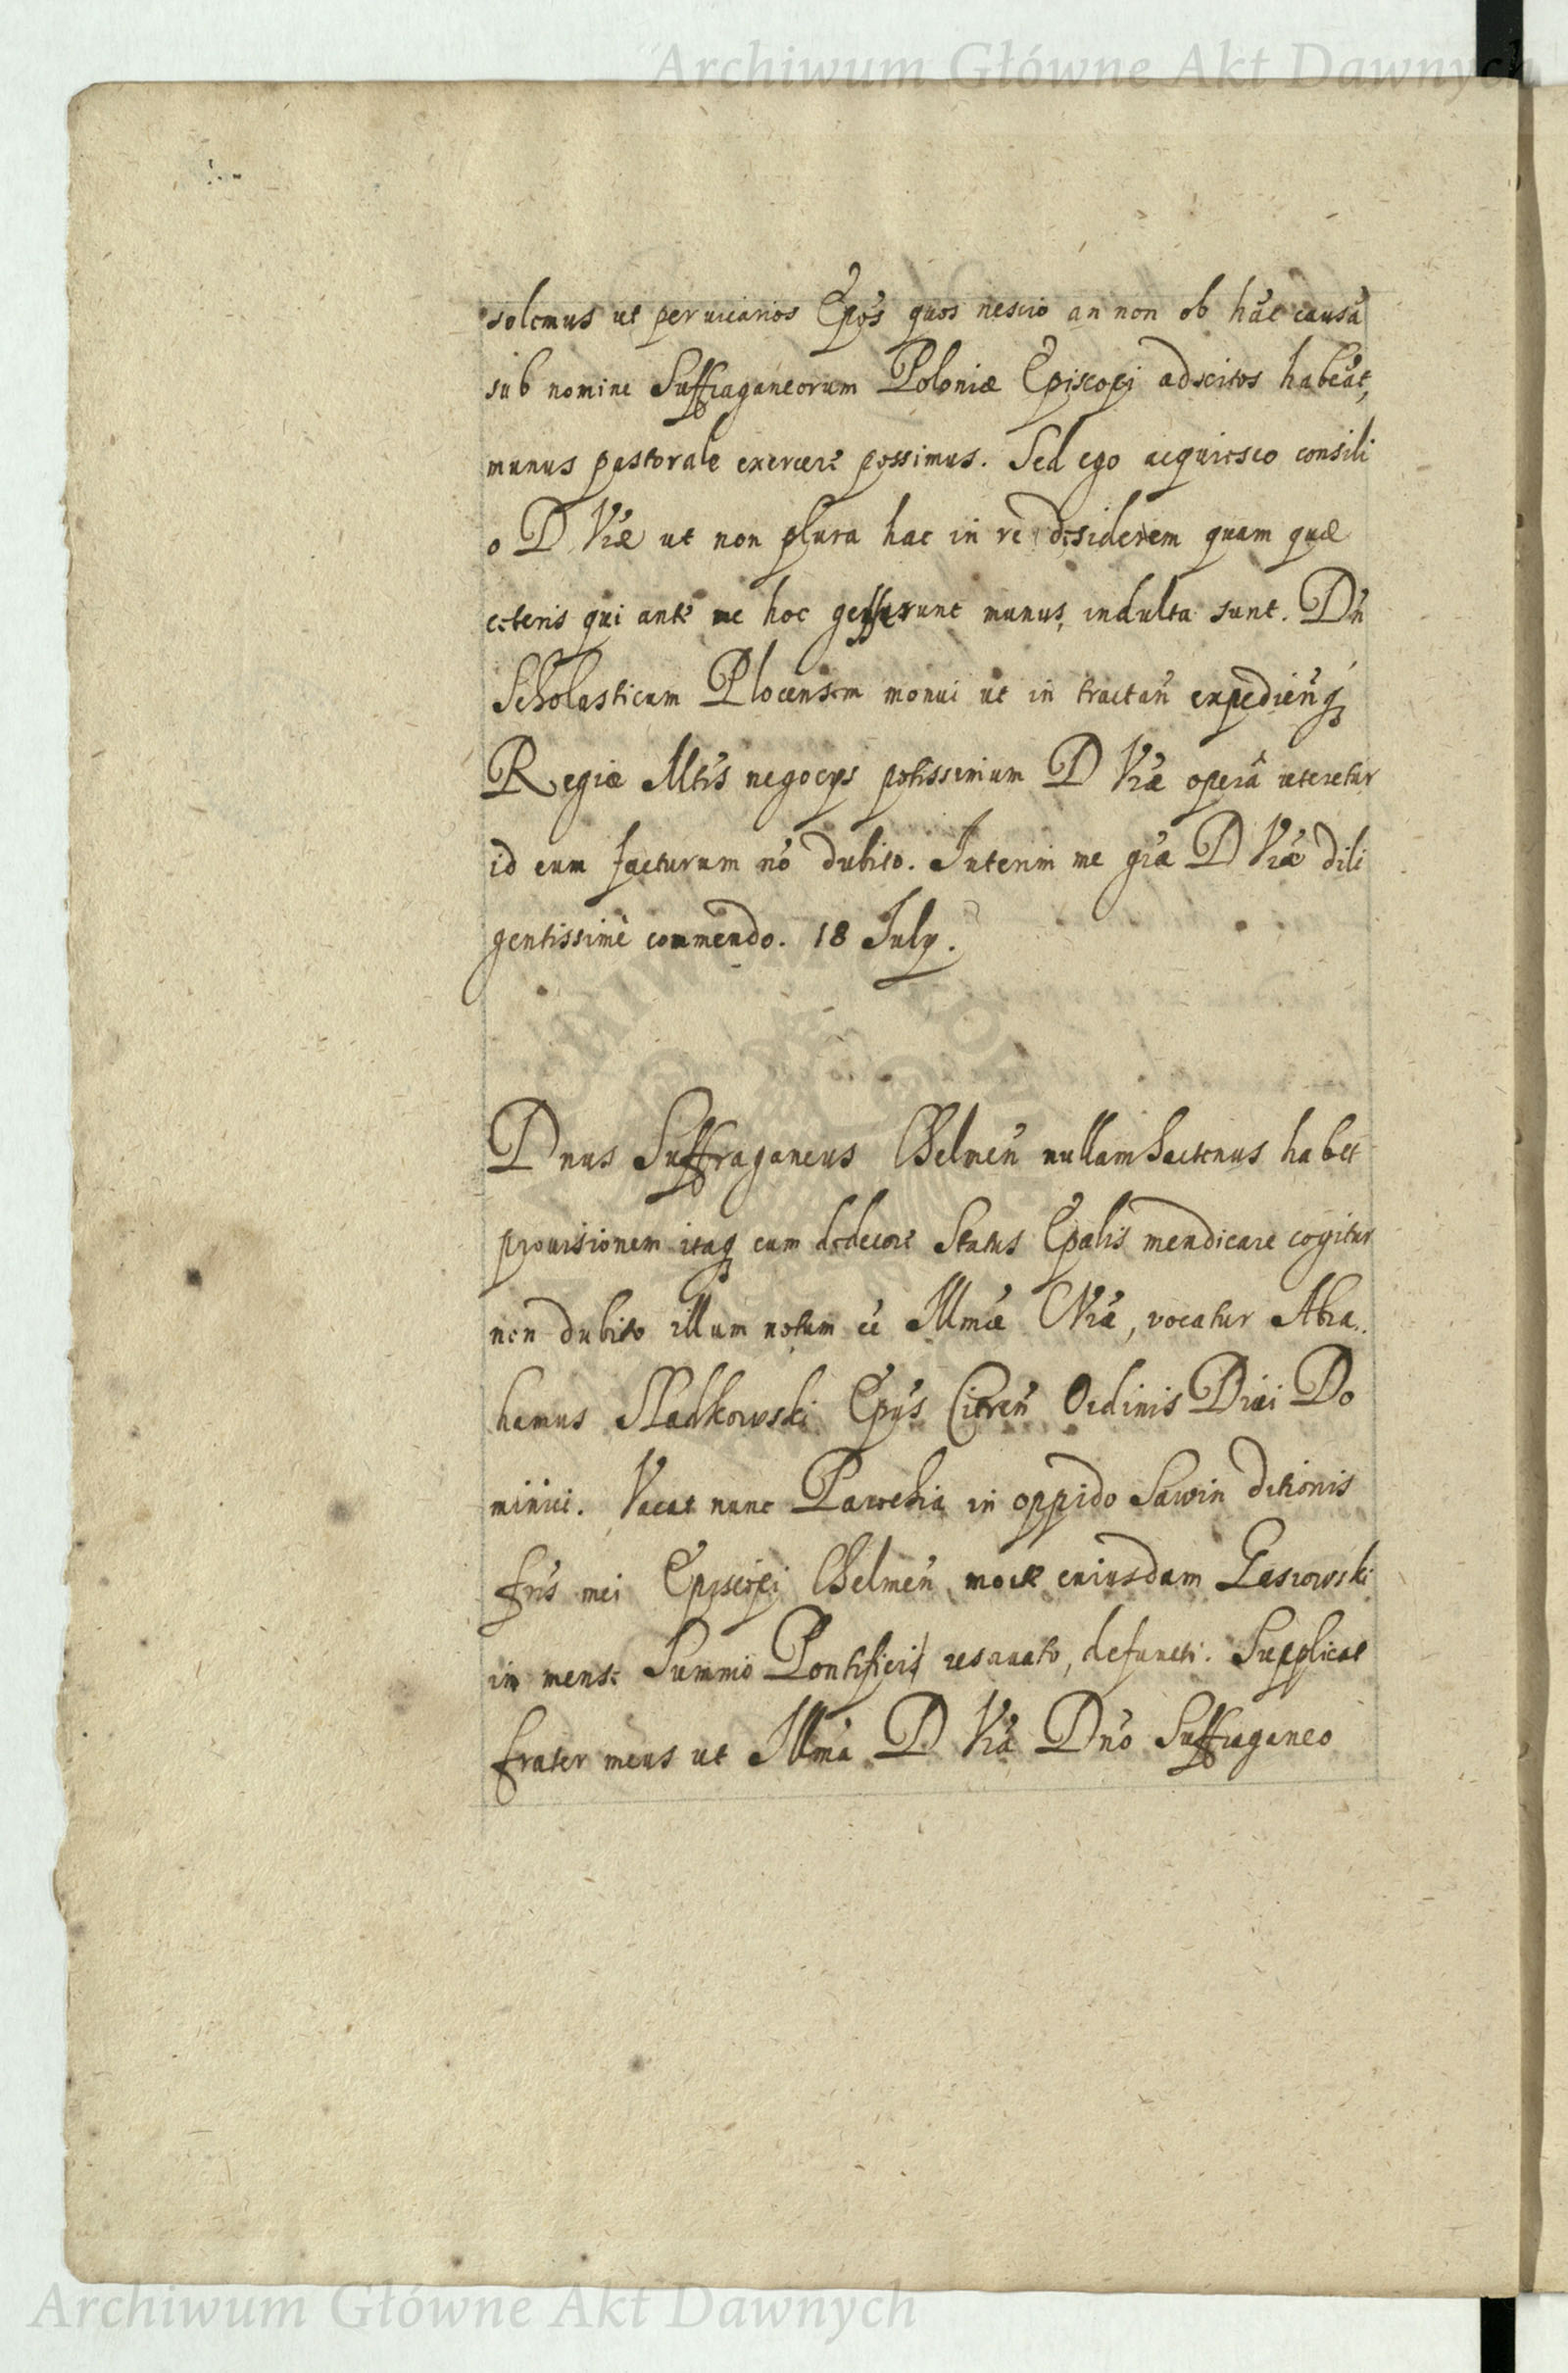 Archiwum Główne Akt Dawnych
solemus ut per vicarios Epo's quos nescio an non ob ha'c causa'
sub nomine Suffraganeorum Poloniæ Episcopi adscitos habea't,
munus pastorale exercere possimus. Sed ego acquiesco consili
o D Vræ ut non plura hac in re desiderem quam quæ
ceteris qui ante me hoc gesserunt munus, indulta sunt. Dn'
Scholasticum Plocensem monui ut in tractan' expedien'q
Regiæ Mtis negocys potissimum D Vræ operâ uteretur
id eum facturum no' dubito. Interim me gra'æ D Vræ dili
gentissimè commendo. 18 July.
Dnus Suffraganeus Chelmen' nullam hactenus habet
provisionem itaq cum dedecore Status Epalis mendicare cogitur
non dubito illum notum ee' Illmæ Vræ, vocatur Abra..
hamus Sladkowski Epu's Citren' Ordinis Diui Do
minici. Vacat nunc Paroehia in oppido Sawin ditionis
fris mei Episcopi Chelmen' morte cuiusdam
in mense Summo Pontifici resaruato, defuncti. Supplicat
frater meus ut Illma D Vra Dn'o Suffraganeo
Archiwum Główne Akt Dawnych